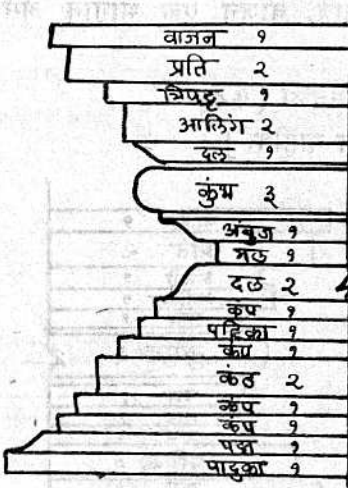 वाजन १
प्रति २
त्रिपट्ट १
आलिंग २
दल १
कुंभ ३
अंबुज १
गल १
दल २
कंप १
पट्टिका १
कंप १
कंठ २
कंप १
कंप १
पद्म १
पादुका १